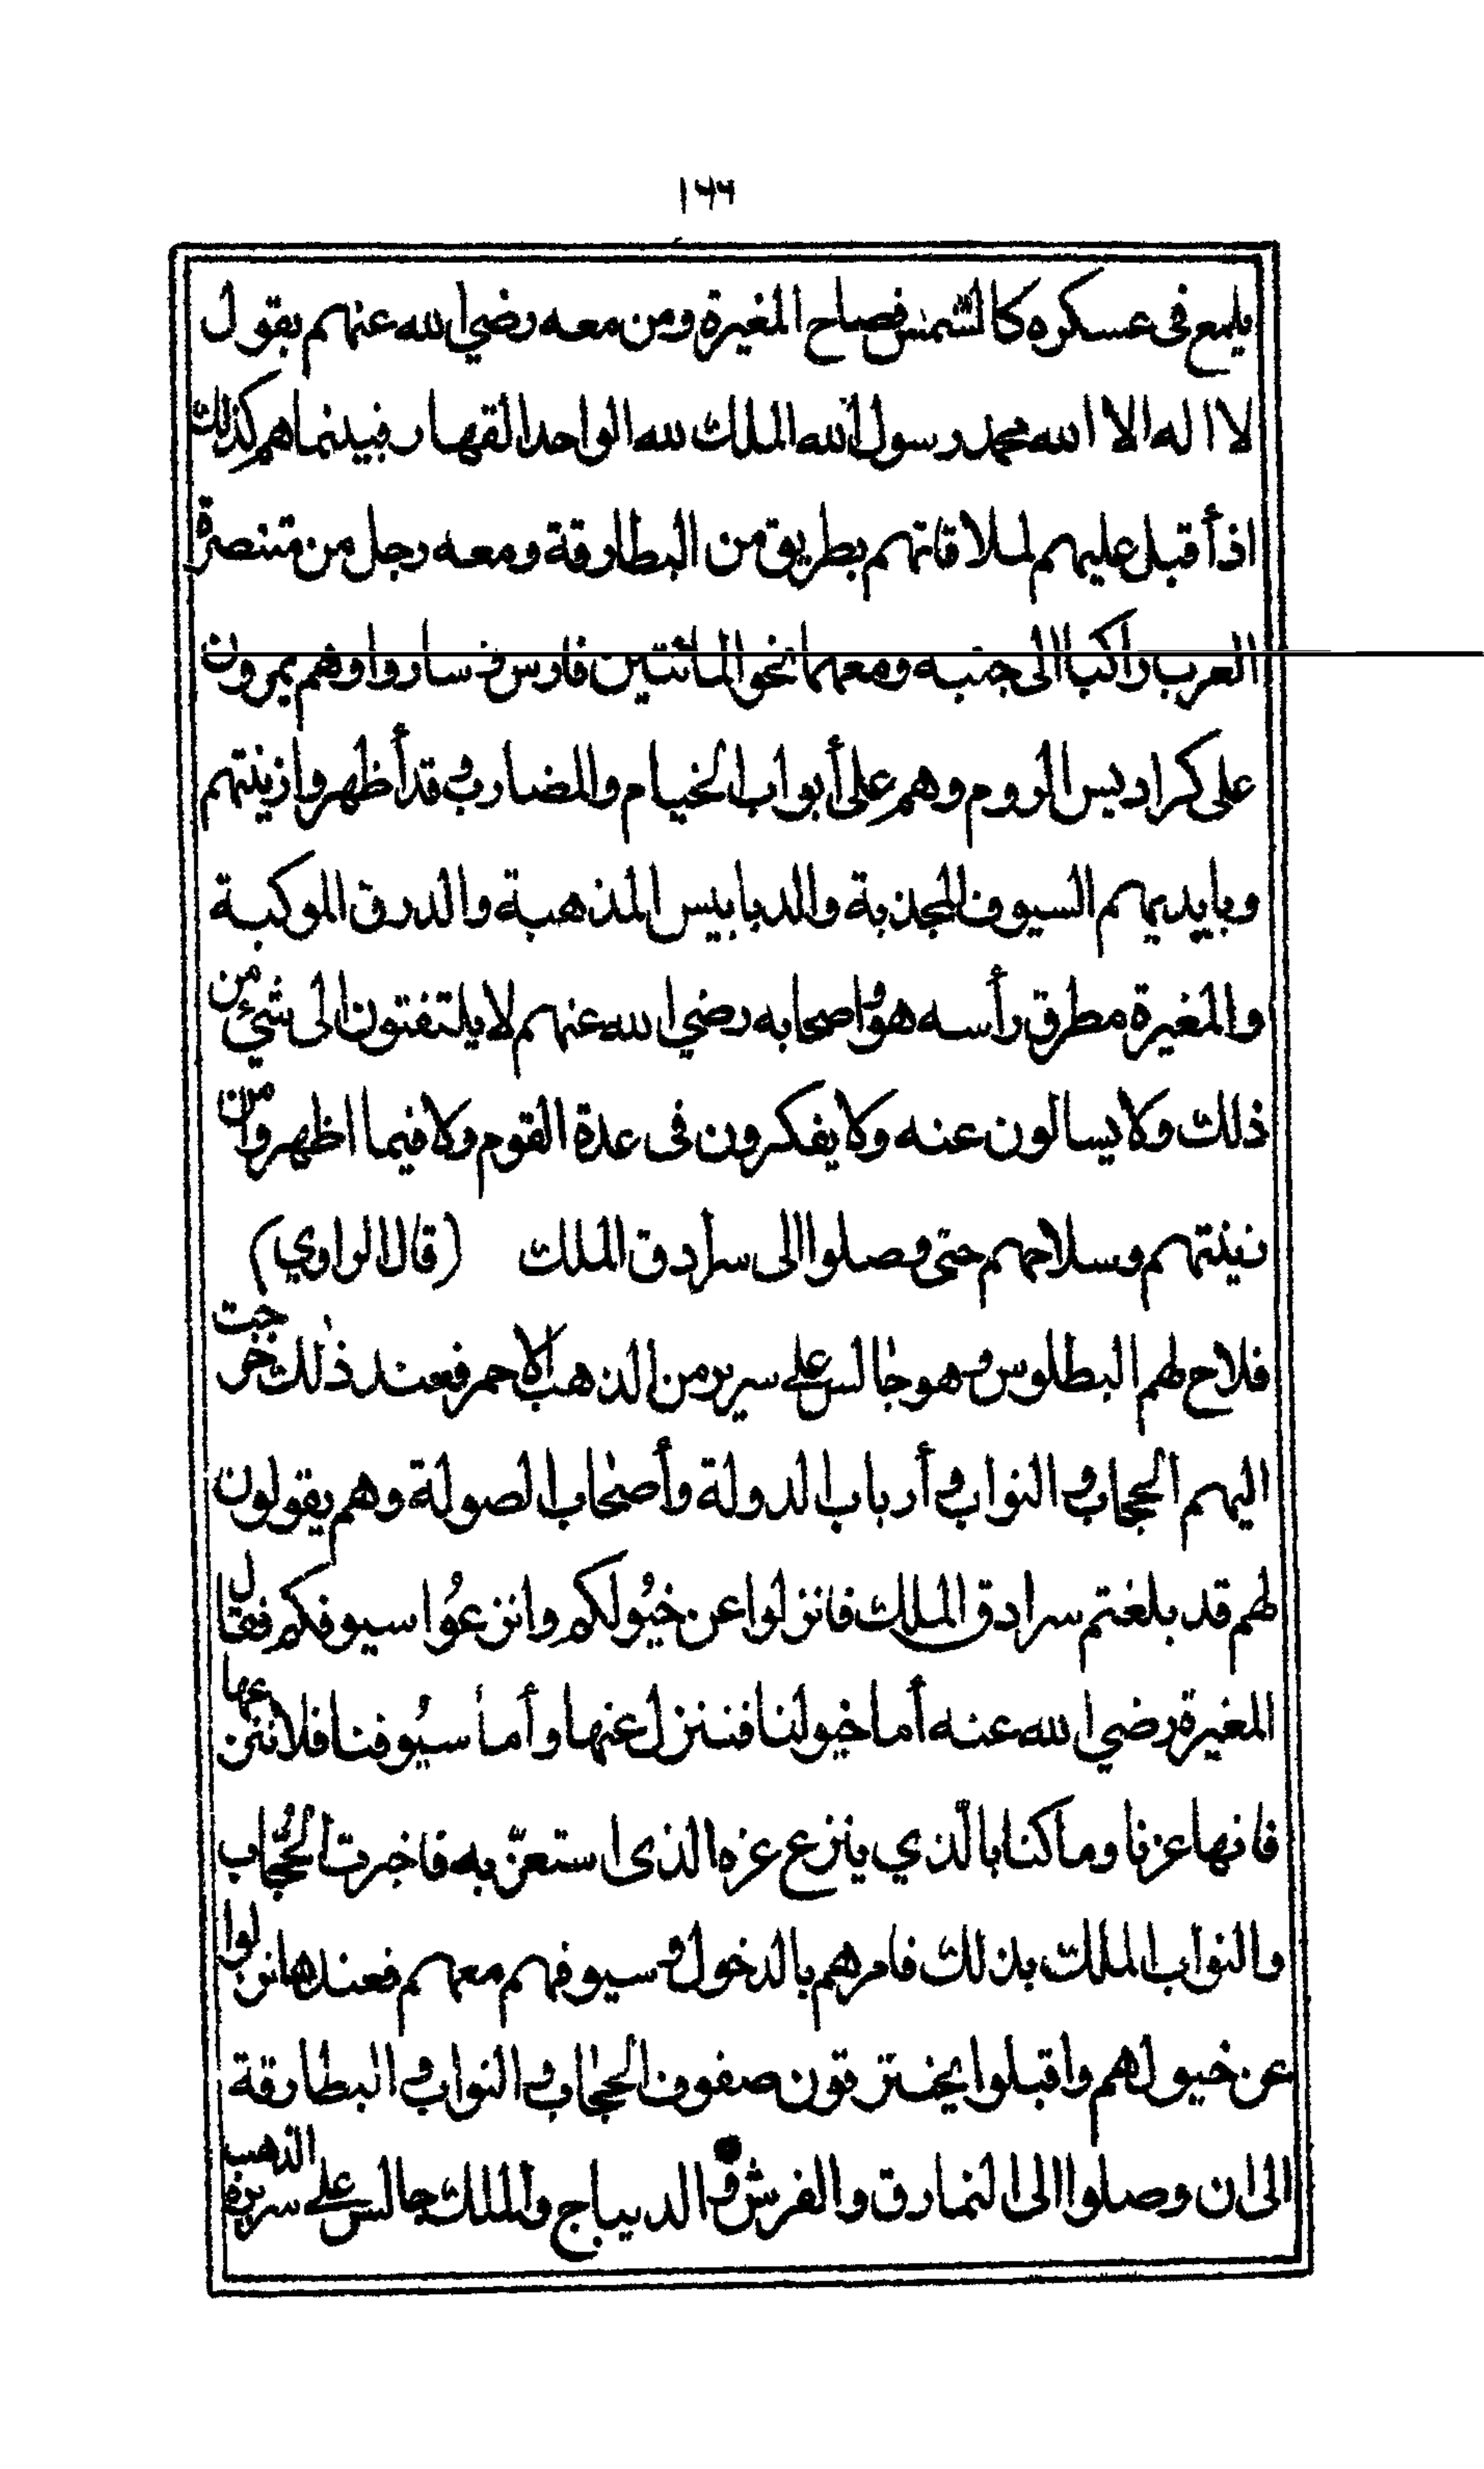 ١٦٦
يلمع فى عسكره كالشمس فصاح المغيرة ومن معه رضي الله عنهم بقول
لا اله الا الله محمد رسول الله الملك لله الواحد القهار فبينما هم كذلك
اذ أقبل عليهم لملاقاتهم بطريق من البطارقة ومعه رجل من متنصرة
العرب راكبا الى جنبه ومعهما نحو المائتين فارس فساروا وهم يمرون
على كراديس الروم وهم على أبواب الخيام والمضارب وقد أظهروا زينتهم
وبايديهم السيوف المجذبة والدبابيس المذهبة والدرق الموكبة
والمغيرة مطرق رأسه هو واصحابه رضي الله عنهم لا يلتفتون الى شئ من
ذلك ولا يسالون عنه ولا يفكرون فى عدة القوم ولا فيما اظهروا من
زينتهم وسلاحهم حتى وصلوا الى سرادق الملك (قال الراوي)
فلاح لهم البطلوس وهو جالس على سرير من الذهب الاحمر فعند ذلك خرجت
اليهم الحجاب والنواب وأرباب الدولة وأصحاب الصولة وهم يقولون
لهم قد بلغتم سرادق الملك فانزلوا عن خيُولكم وانزعُوا سيوفكم فقال
المغيرة رضي الله عنه أما خيولنا فننزل عنها وأما سيُوفنا فلا ننزعها
فانها عزنا وما كنا بالّذي ينزع عزه الذى استعزّ به فاخبرت الحُجّاب
والنواب الملك بذلك فامرهم بالدخول وسيوفهم معهم فعندها نزلوا
عن خيولهم واقبلوا يخترقون صفوف الحجاب والنواب والبطارقة
الى ان وصلوا الى النمارق والفرش والديباج والملك جالس على سريره الذهب